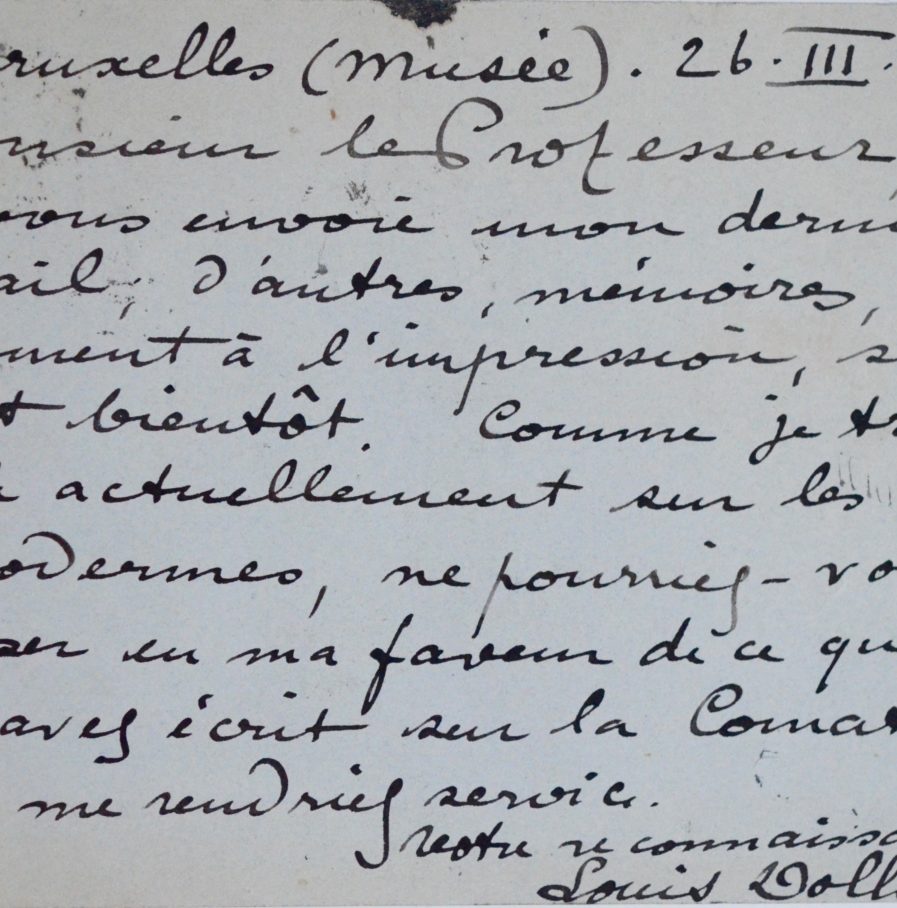 ruxelles (Musée). 26. III.
nsieur le Professeur,
vous envoie mon derni
ail; d'autres, mémoires,
ment à l'impression, s
t bientôt. Comme je tr
actuellement sur les
odermes, ne pourriez-vo
ser en ma faveur de ce qu
avez écrit sur la Comat
me rendriez service.
Votre reconnaissa
Louis Doll